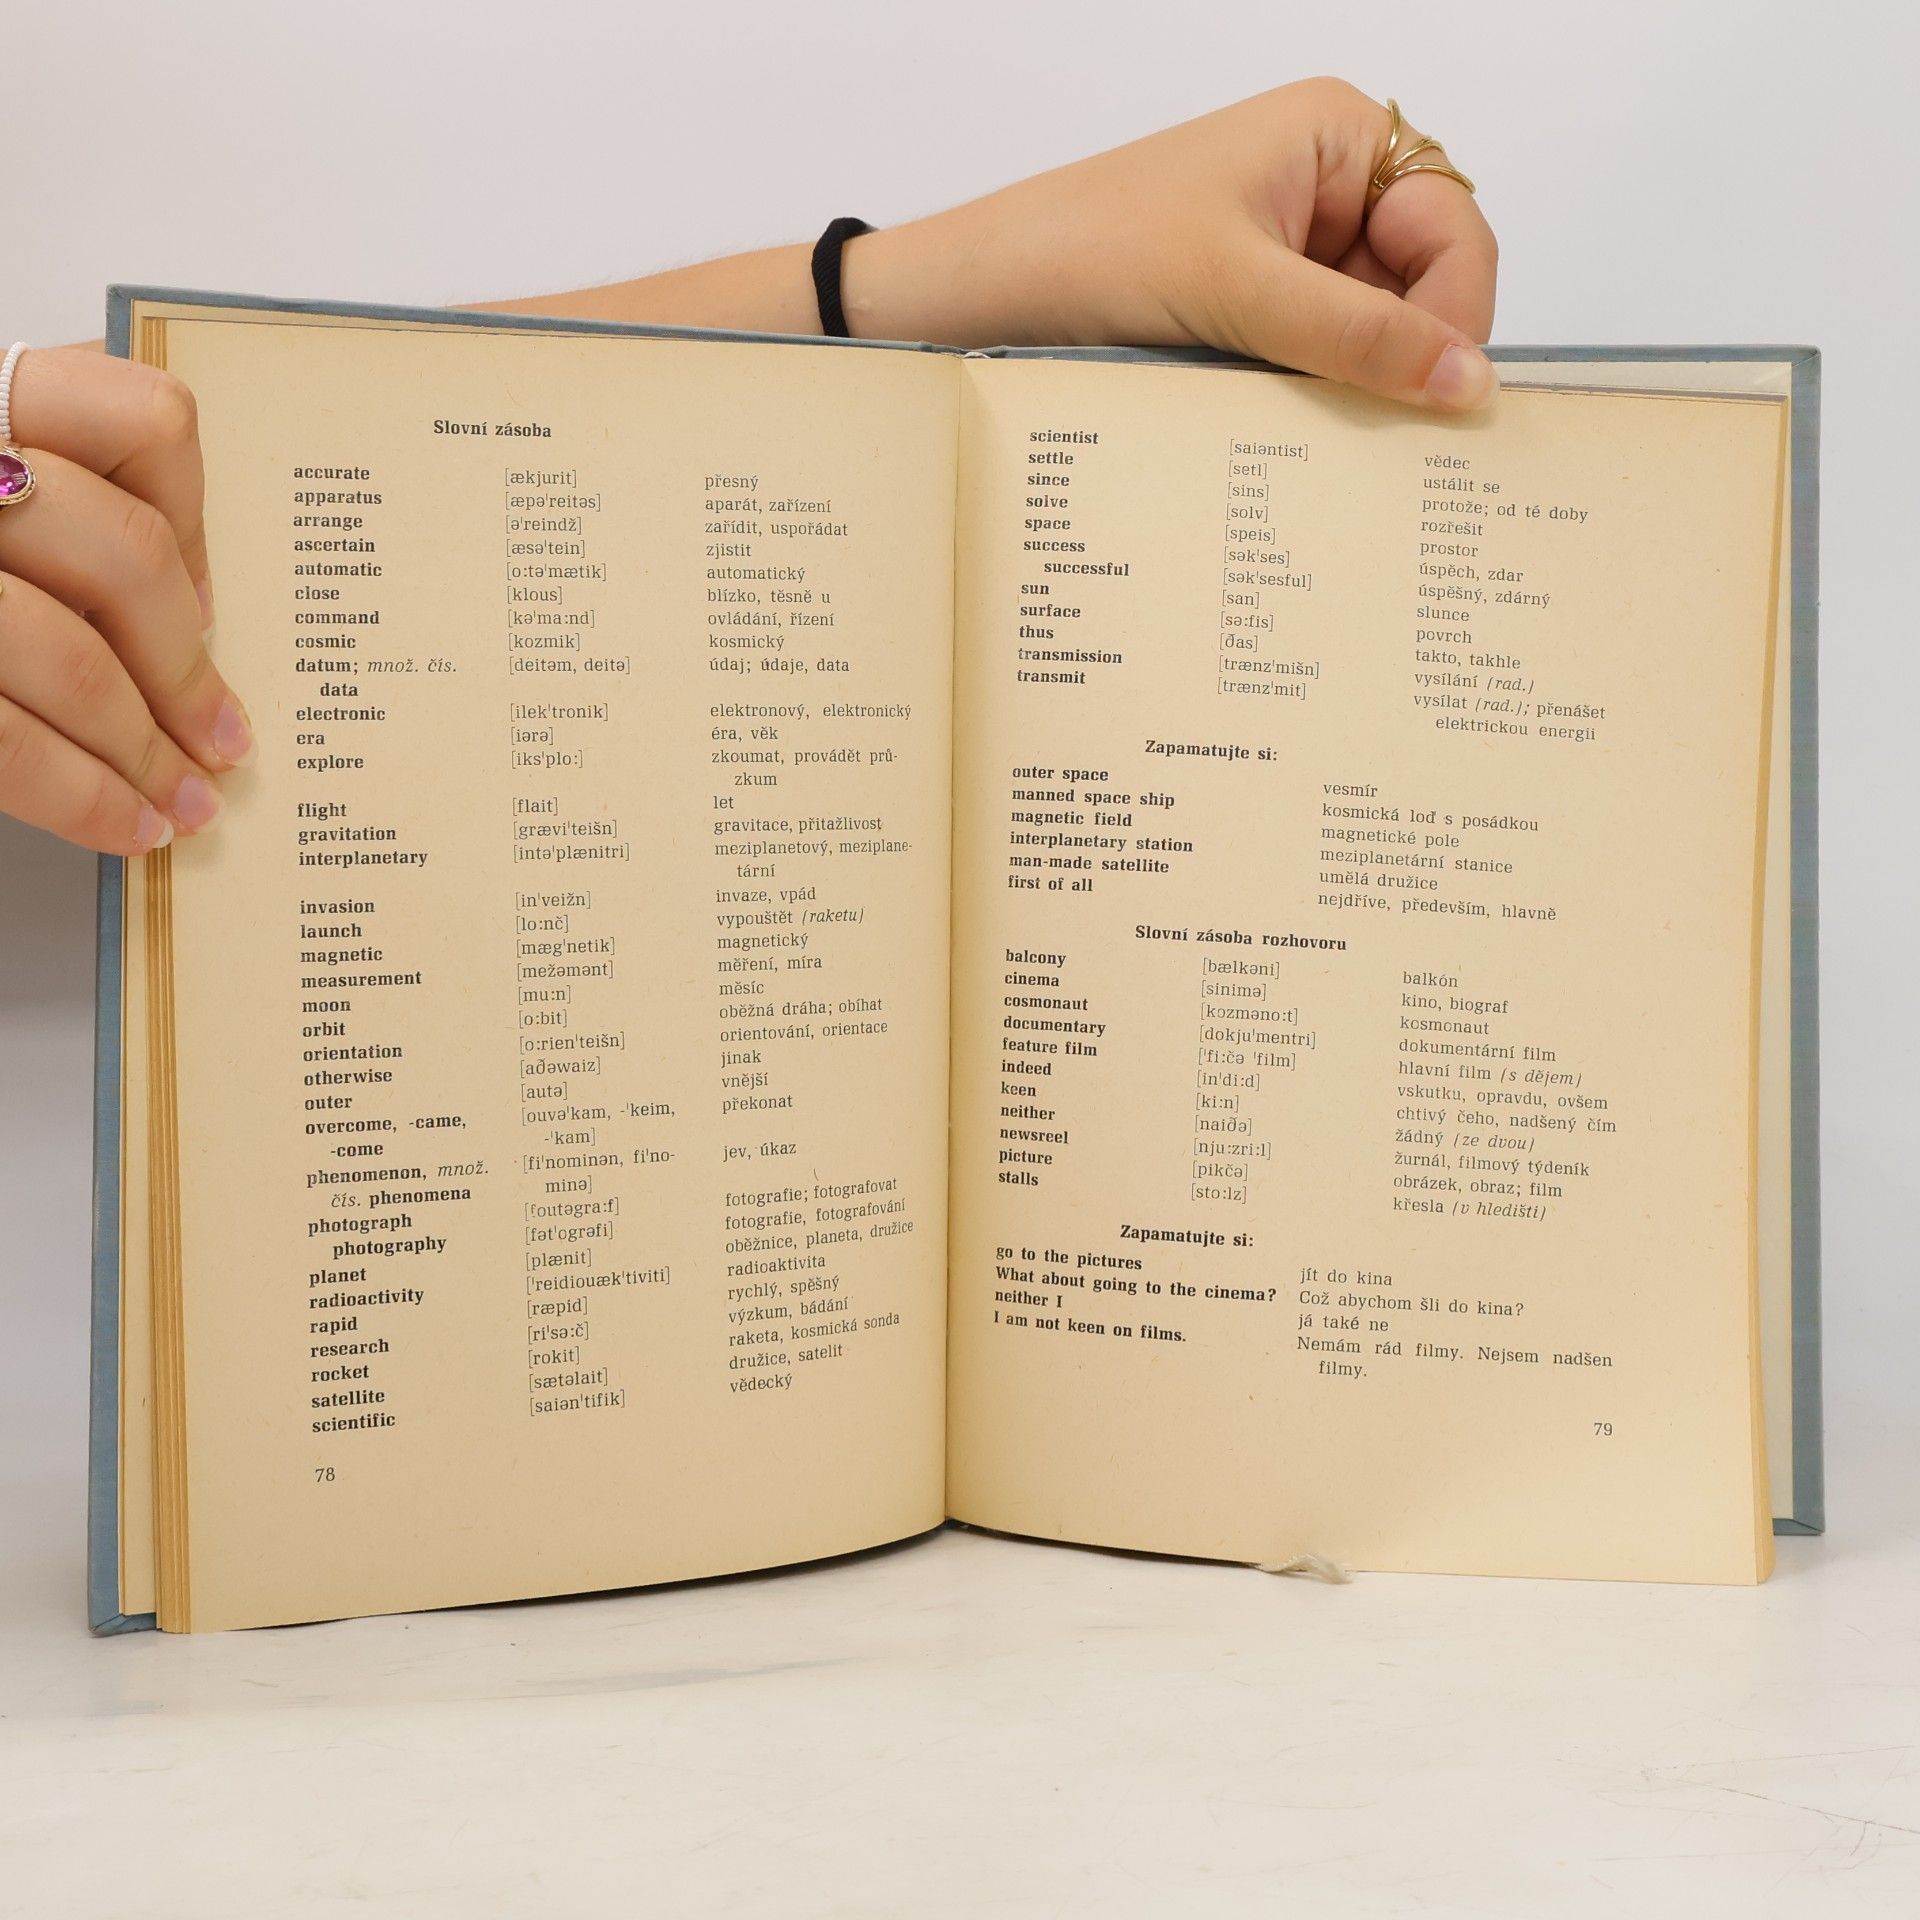 Slovní zásoba
accurate [ækjurit] přesný
apparatus [æpəˈreitəs] aparát, zařízení
arrange [əˈreindž] zařídit, uspořádat
ascertain [æsəˈtein] zjistit
automatic [o:təˈmætik] automatický
close [klous] blízko, těsně u
command [kəˈma:nd] ovládání, řízení
cosmic [kozmik] kosmický
datum; množ. čís. [deitəm, deitə] údaj; údaje, data
data
electronic [ilekˈtronik] elektronový, elektronický
era [iərə] éra, věk
explore [iksˈplo:] zkoumat, provádět prů-
zkum
flight [flait] let
gravitation [græviˈteišn] gravitace, přitažlivost
interplanetary [intəˈplænitri] meziplanetový, meziplane-
tární
invasion [inˈveižn] invaze, vpád
launch [lo:nč] vypouštět (raketu)
magnetic [mægˈnetik] magnetický
measurement [mežəmənt] měření, míra
moon [mu:n] měsíc
orbit [o:bit] oběžná dráha; obíhat
orientation [o:rienˈteišn] orientování, orientace
otherwise [aðəwaiz] jinak
outer [autə] vnější
overcome, -came, [ouvəˈkam, -ˈkeim, překonat
-come -ˈkam]
phenomenon, množ. [fiˈnominən, fiˈno- jev, úkaz
čís. phenomena minə]
photograph [foutəgra:f] fotografie; fotografovat
photography [fətˈogrəfi] fotografie, fotografování
planet [plænit] oběžnice, planeta, družice
radioactivity [ˈreidiouækˈtiviti] radioaktivita
rapid [ræpid] rychlý, spěšný
research [riˈsə:č] výzkum, bádání
rocket [rokit] raketa, kosmická sonda
satellite [sætəlait] družice, satelit
scientific [saiənˈtifik] vědecký
78
scientist [saiəntist] vědec
settle [setl] ustálit se
since [sins] protože; od té doby
solve [solv] rozřešit
space [speis] prostor
success [səkˈses] úspěch, zdar
successful [səkˈsesful] úspěšný, zdárný
sun [san] slunce
surface [sə:fis] povrch
thus [ðas] takto, takhle
transmission [trænzˈmišn] vysílání (rad.)
transmit [trænzˈmit] vysílat (rad.); přenášet
elektrickou energii
Zapamatujte si:
outer space vesmír
manned space ship kosmická loď s posádkou
magnetic field magnetické pole
interplanetary station meziplanetární stanice
man-made satellite umělá družice
first of all nejdříve, především, hlavně
Slovní zásoba rozhovoru
balcony [bælkəni] balkón
cinema [sinimə] kino, biograf
cosmonaut [kozməno:t] kosmonaut
documentary [dokjuˈmentri] dokumentární film
feature film [ˈfi:čə ˈfilm] hlavní film (s dějem)
indeed [inˈdi:d] vskutku, opravdu, ovšem
keen [ki:n] chtivý čeho, nadšený čím
neither [naiðə] žádný (ze dvou)
newsreel [nju:zri:l] žurnál, filmový týdeník
picture [pikčə] obrázek, obraz; film
stalls [sto:lz] křesla (v hledišti)
Zapamatujte si:
go to the pictures jít do kina
What about going to the cinema? Což abychom šli do kina?
neither I já také ne
I am not keen on films. Nemám rád filmy. Nejsem nadšen
filmy.
79